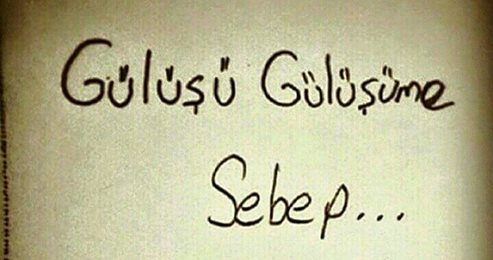 Gülüşü Gülüşüme
Sebep...